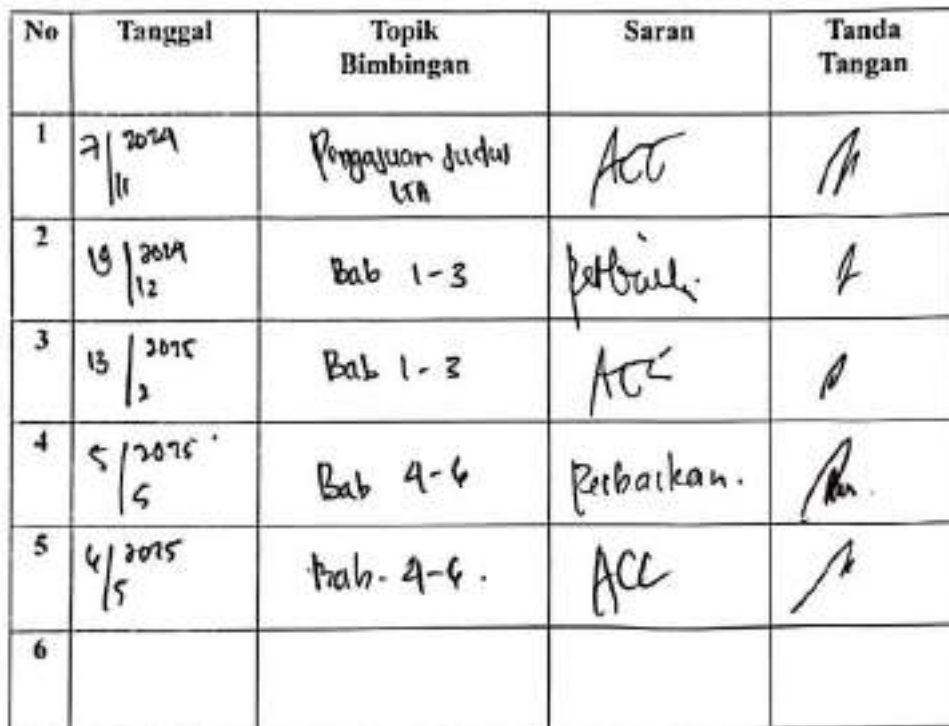 No Tanggal Topik Bimbingan Saran Tanda Tangan
1 7/11 2024 Pengajuan Judul LTA ACC
2 19/12 2024 Bab 1-3 Perbaiki
3 13/2 2025 Bab 1-3 ACC
4 5/5 2025 Bab 4-6 Perbaikan.
5 6/5 2025 Bab 4-6. ACC
6